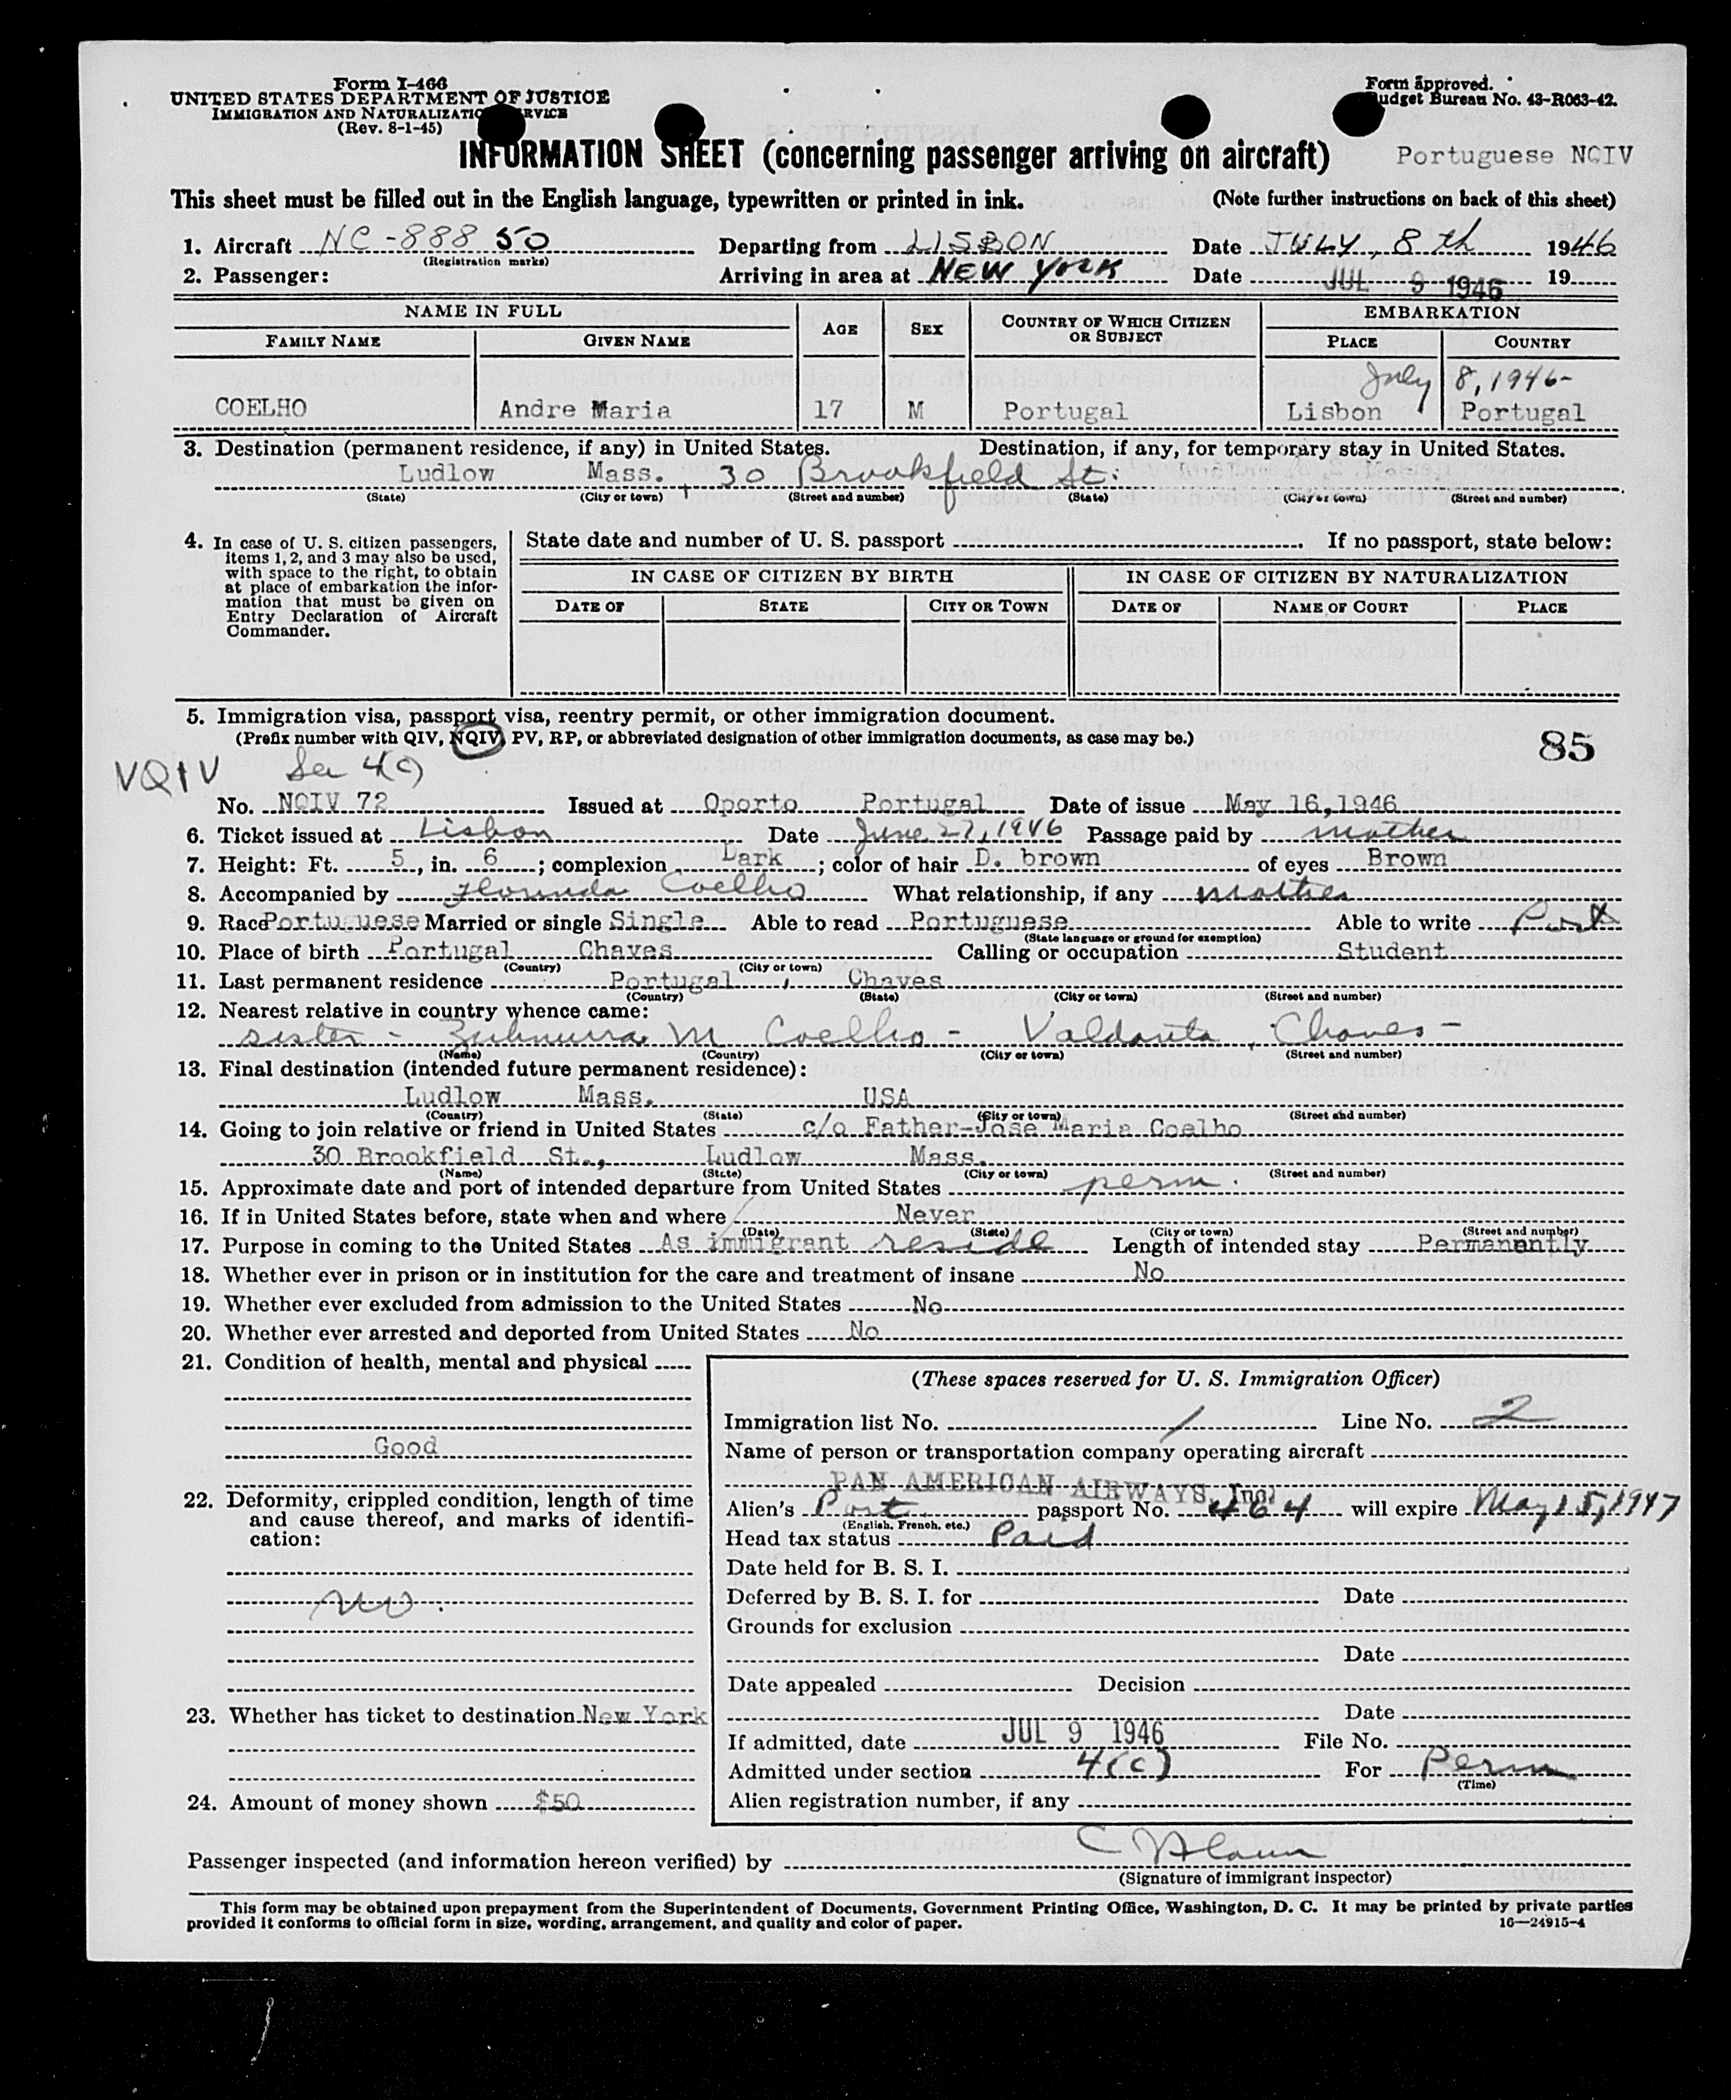 Form I-466
UNITED STATES DEPARTMENT OF JUSTICE
IMMIGRATION AND NATURALIZATION SERVICE
(Rev. 8-1-45)
Form approved.
Budget Bureau No. 43-R063-42.
INFORMATION SHEET (concerning passenger arriving on aircraft) Portuguese NQIV
This sheet must be filled out in the English language, typewritten or printed in ink. (Note further instructions on back of this sheet)
1. Aircraft NC-88850 Departing from LISBON Date JULY, 8th 1946
(Registration marks)
2. Passenger: Arriving in area at NEW YORK Date JUL 9 1946 19
NAME IN FULL AGE SEX COUNTRY OF WHICH CITIZEN OR SUBJECT EMBARKATION
FAMILY NAME GIVEN NAME PLACE COUNTRY
July 8, 1946-
COELHO Andre Maria 17 M Portugal Lisbon Portugal
3. Destination (permanent residence, if any) in United States. Destination, if any, for temporary stay in United States.
Ludlow Mass. 30 Brookfield St.
(State) (City or town) (Street and number) (State) (City or town) (Street and number)
4. In case of U. S. citizen passengers, items 1, 2, and 3 may also be used, with space to the right, to obtain at place of embarkation the information that must be given on Entry Declaration of Aircraft Commander.
State date and number of U. S. passport If no passport, state below:
IN CASE OF CITIZEN BY BIRTH IN CASE OF CITIZEN BY NATURALIZATION
DATE OF STATE CITY OR TOWN DATE OF NAME OF COURT PLACE
5. Immigration visa, passport visa, reentry permit, or other immigration document.
(Prefix number with QIV, NQIV, PV, RP, or abbreviated designation of other immigration documents, as case may be.) 85
VQIV Sec 4(c)
No. NQIV 72 Issued at Oporto Portugal Date of issue May 16,1946
6. Ticket issued at Lisbon Date June 27, 1946 Passage paid by mother
7. Height: Ft. 5, in. 6; complexion Dark; color of hair D. brown of eyes Brown
8. Accompanied by Florinda Coelho What relationship, if any mother
9. Race Portuguese Married or single Single Able to read Portuguese Able to write Port
(State language or ground for exemption)
10. Place of birth Portugal Chaves Calling or occupation Student
(Country) (City or town)
11. Last permanent residence Portugal, Chaves
(Country) (State) (City or town) (Street and number)
12. Nearest relative in country whence came:
sister - M Coelho - Valdanta, Chaves -
(Name) (Country) (City or town) (Street and number)
13. Final destination (intended future permanent residence):
Ludlow Mass. USA
(Country) (State) (City or town) (Street and number)
14. Going to join relative or friend in United States c/o Father-Jose Maria Coelho
30 Brookfield St., Ludlow Mass.
(Name) (State) (City or town) (Street and number)
15. Approximate date and port of intended departure from United States perm.
16. If in United States before, state when and where Never
(Date) (State) (City or town) (Street and number)
17. Purpose in coming to the United States As immigrant reside Length of intended stay Permanently
18. Whether ever in prison or in institution for the care and treatment of insane No
19. Whether ever excluded from admission to the United States No
20. Whether ever arrested and deported from United States No
21. Condition of health, mental and physical
Good
22. Deformity, crippled condition, length of time and cause thereof, and marks of identification:
no.
23. Whether has ticket to destination New York
24. Amount of money shown $50
(These spaces reserved for U. S. Immigration Officer)
Immigration list No. 1 Line No. 2
Name of person or transportation company operating aircraft
PAN AMERICAN AIRWAYS, Inc.
Alien's Port. passport No. 464 will expire May 15, 1947
(English, French, etc.)
Head tax status Paid
Date held for B. S. I.
Deferred by B. S. I. for Date
Grounds for exclusion
Date
Date appealed Decision
Date
If admitted, date JUL 9 1946 File No.
Admitted under section 4(c) For Perm
(Time)
Alien registration number, if any
Passenger inspected (and information hereon verified) by
(Signature of immigrant inspector)
This form may be obtained upon prepayment from the Superintendent of Documents, Government Printing Office, Washington, D. C. It may be printed by private parties
provided it conforms to official form in size, wording, arrangement, and quality and color of paper. 16—24915-4